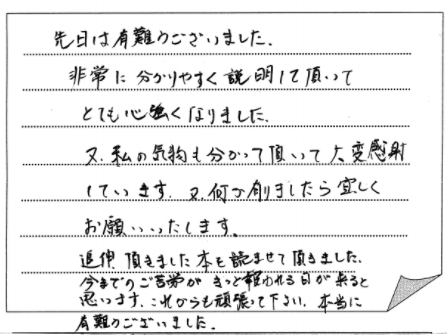 先日は有難うございました。
非常に分かりやすく説明して頂いて
とても心強くなりました。
又、私の気持も分かって頂いて大変感謝
しています。又、何か創りましたら宜しく
お願いいたします。
追伸 頂きました本を読ませて頂きました。
今までのご苦労がきっと報われる日が来ると
思います。これからも頑張って下さい。本当に
有難うございました。